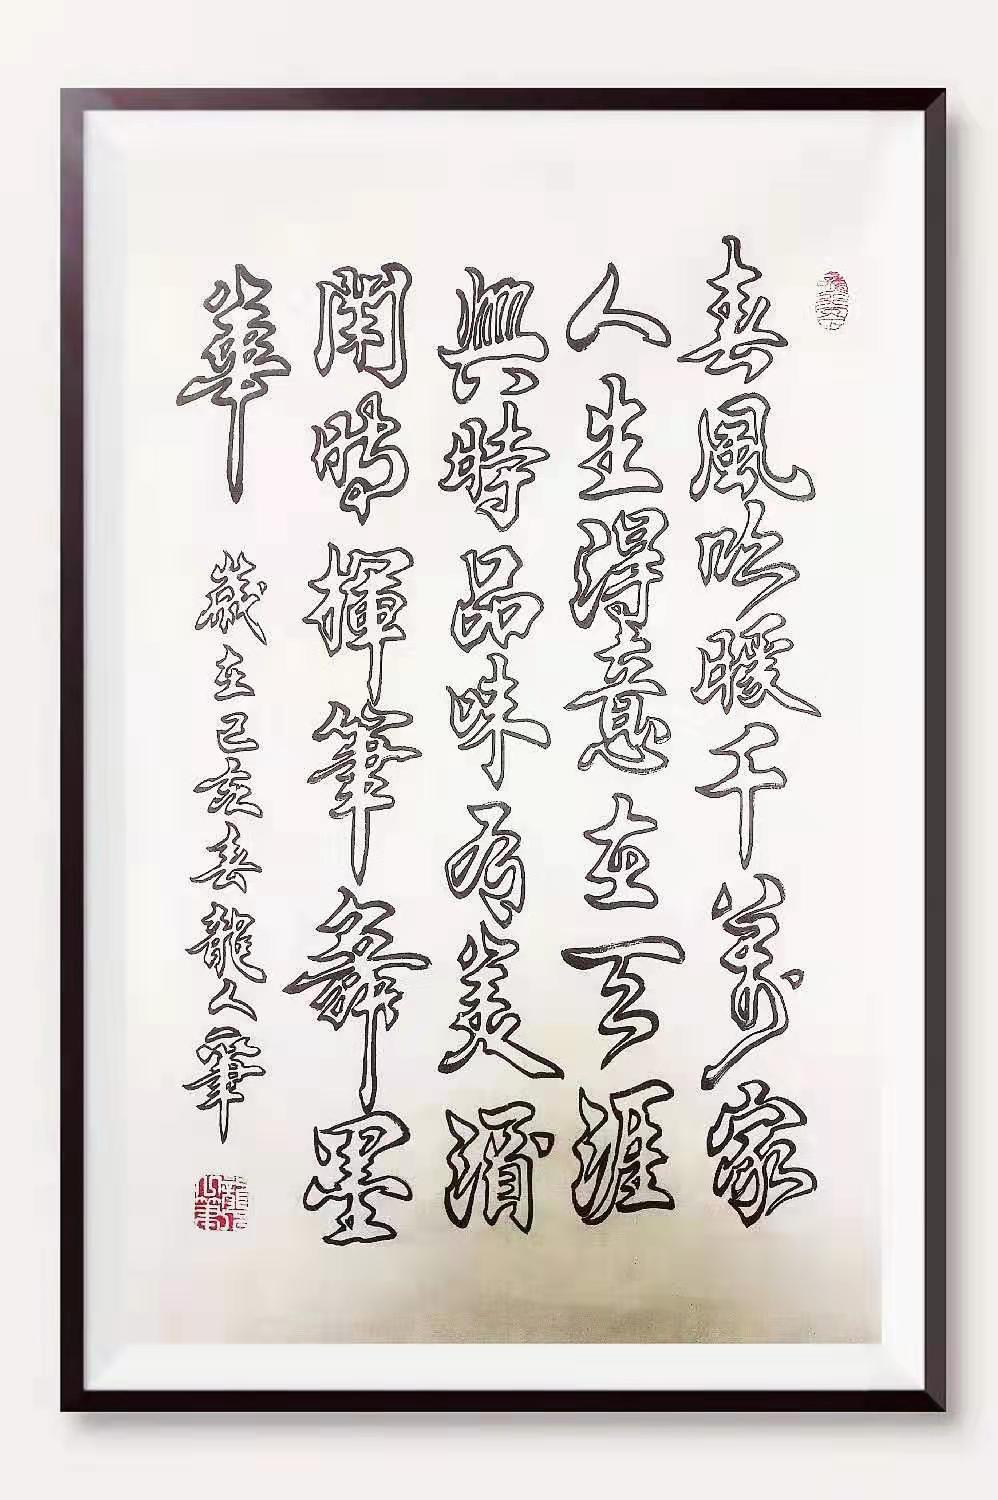 春風吹暖千萬家
人生得意在天涯
興時品味有美酒
閑時揮筆舞墨
華
歲在己亥春龍人筆